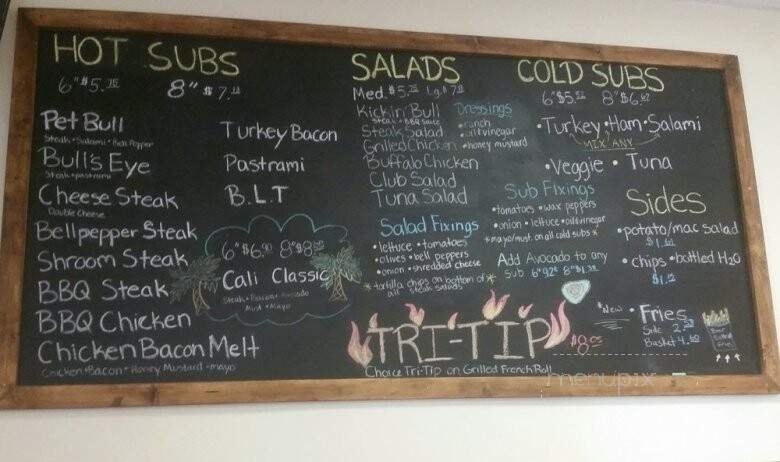 HOT SUBS
8" $7.
Pet Bull
Steak • Salami • Bell Pepper
Bull's Eye
Steak • pastrami
Cheese Steak
Double Cheese
Bellpepper Steak
Shroom Steak
BBQ Steak
BBQ Chicken
Chicken Bacon Melt
Chicken • Bacon • Honey Mustard • mayo
Turkey Bacon
Pastrami
B.L.T
Cali Classic
Steak • Bacon • Avocado
Must • Mayo
SALADS
Med. $5. Lg. $7.
Kickin Bull
Steak • BBQ Sauce
Steak Salad
Grilled Chicken
Buffalo Chicken
Club Salad
Tuna Salad
Dressings
• ranch
• oil vinegar
• honey mustard
Salad Fixings
• lettuce • tomatoes
• olives • bell peppers
• onion • shredded cheese
* tortilla chips on bottom of *
all steak salads
COLD SUBS
• Turkey • Ham • Salami
MIX ANY
• Veggie • Tuna
Sub Fixings
• tomatoes • wax peppers
• onion • lettuce • oil vinegar
* mayo/must on all cold subs *
Add Avocado to any
sub
Sides
• potato/mac salad
• chips • bottled H2O
*New • Fries
Side 2.
Basket 4.
TRI-TIP
Choice Tri-Tip on Grilled French Roll
menupix